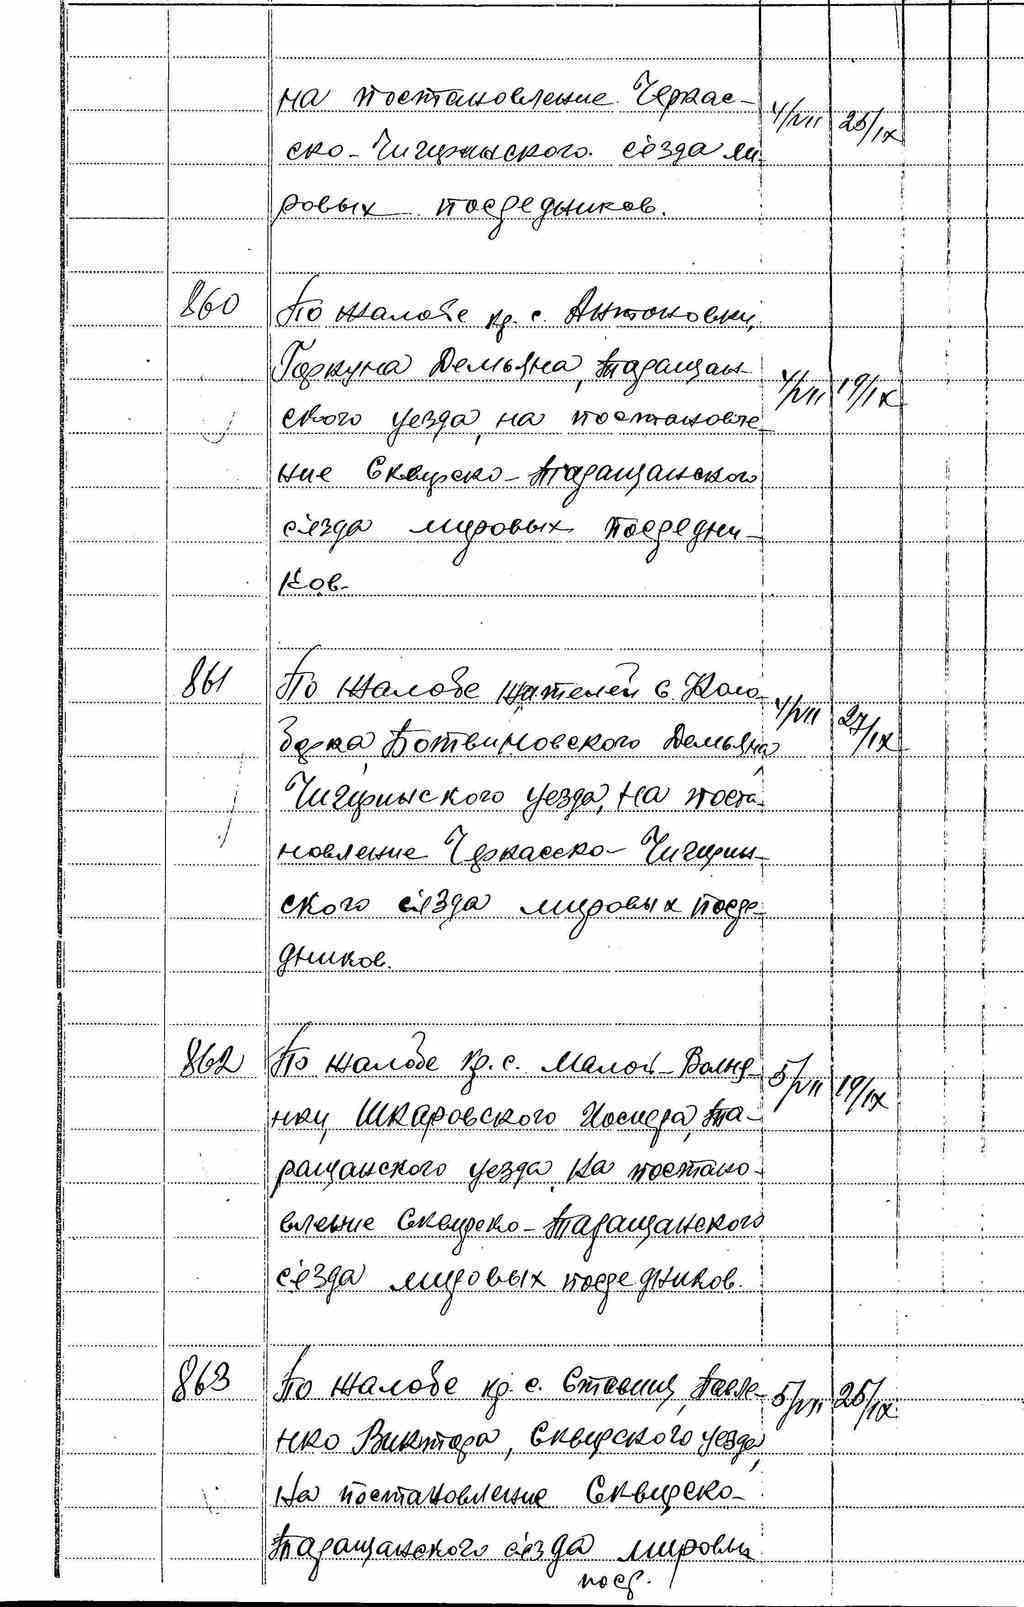 на постановление Черкас-
4/VII 25/IX
ско-Чигиринского съезда ми-
ровых посредников.
860 По жалобе кр. с. Антоновки,
Горкуна Демьяна, Таращан-
4/VII 19/IX
ского уезда, на постановле-
ние Сквирско-Таращанского
съезда мировых посредни-
ков.
861 По жалобе жителей с.
4/VII 27/IX
Ботвиновского Демьяна,
Чигиринского уезда, на поста-
новление Черкасско-Чигирин-
ского съезда мировых посре-
дников.
862 По жалобе кр. с. Малой-Волнян-
5/VII 19/IX
нки, Шкаровского Иосифа, Та-
ращанского уезда, на постано-
вление Сквирско-Таращанского
съезда мировых посредников.
863 По жалобе кр. с. Ставищ, Павле- 5/VII 25/IX
нко Виктора, Сквирского уезда,
на постановление Сквирско-
Таращанского съезда мировых
поср.